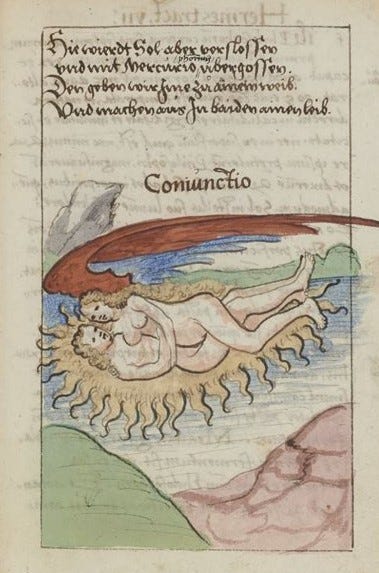 Hie wierdt Sol aber verslossen
vnd mit Mercurio übergossen.
Den geben wir Jme zu ainem weib.
Vnd machen aus Jn baiden ainen leib.
Coniunctio